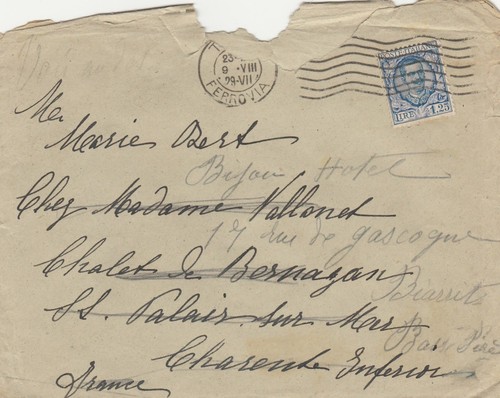 23
9 · VIII
29-VII
FERROVIA
POSTE ITALIANE
LIRE 1,25
Me
Marie Bert
Bijou Hotel
Chez Madame Vallonet
17 rue de gascogne
Chalet de Bernazan
Biarritz
St. Palais sur Mer
Charente Inferior
France